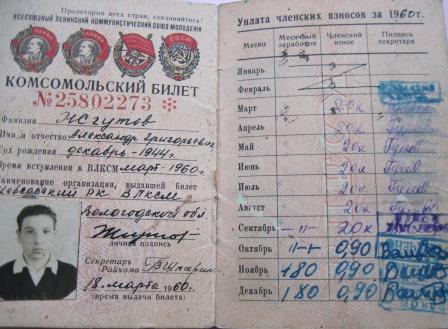 Пролетарии всех стран, соединяйтесь!
ВСЕСОЮЗНЫЙ ЛЕНИНСКИЙ КОММУНИСТИЧЕСКИЙ СОЮЗ МОЛОДЕЖИ
КОМСОМОЛЬСКИЙ БИЛЕТ
№25802273
Фамилия
Имя и отчество Александр Григорьевич
Год рождения декабрь-1944г.
Время вступления в ВЛКСМ март-1960г.
Наименование организации, выдавшей билет
РК ВЛКСМ
Вологодской обл.
личная подпись
Секретарь
Райкома
18 марта 1960г.
(время выдачи билета)
Уплата членских взносов за 1960г.
Месяц Месячный заработок Членский взнос Подпись секретаря
Январь
Февраль
Март 20к
Апрель 20к
Май 20к
Июнь 20к
Июль 20к
Август 20к
Сентябрь -11- 20к
Октябрь 0,90
Ноябрь 180 0,90
Декабрь 180 0,90